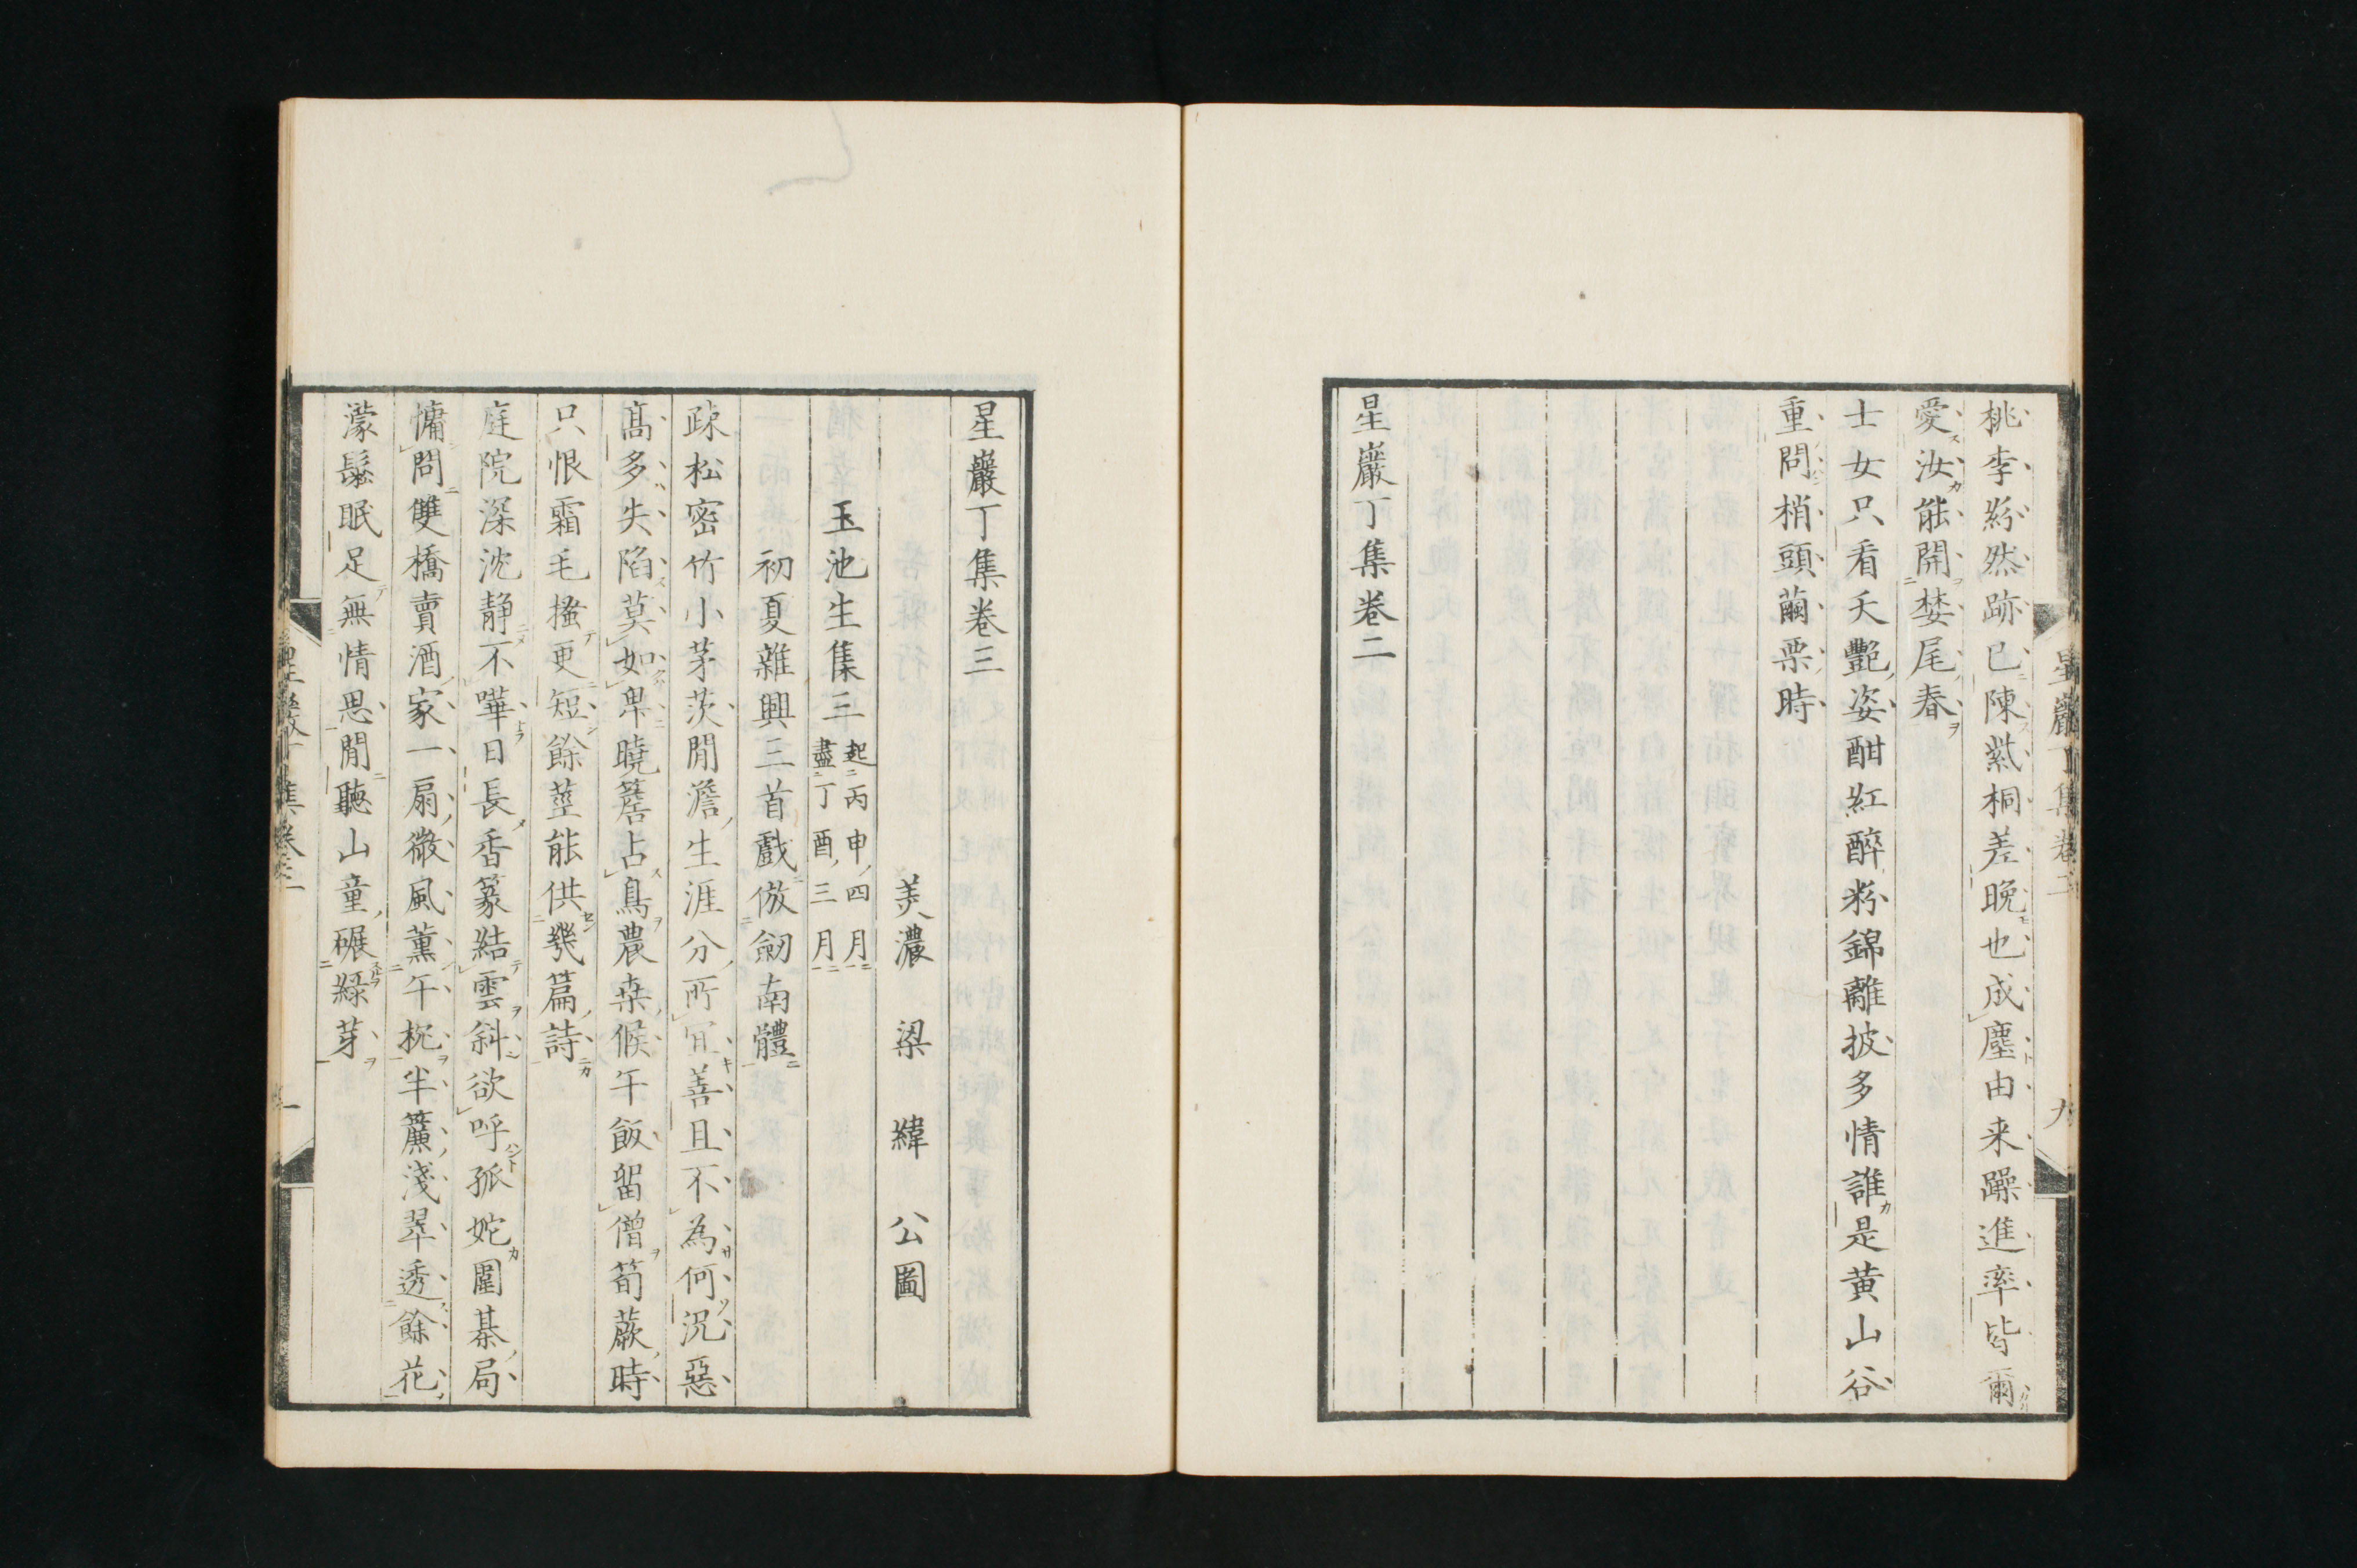 桃李紛然跡已陳紫桐差晚也成塵由来躁進率皆爾
愛汝能開婪尾春
士女只看夭艷姿酣紅醉粉錦離披多情誰是黄山谷
重問梢頭繭栗時
星巖丁集卷二
星巖丁集卷二
九
星巖丁集卷三
美濃 梁 緯 公圖
玉池生集三 起丙申四月
盡丁酉三月
初夏雜興三首戯倣劒南體
疎松密竹小茅茨閒澹生涯分所宜善且不為何況惡
髙多失陷莫如卑曉簷占鳥農桒候午飯留僧荀蕨時
只恨霜毛搔更短餘莖能供幾篇詩
庭院深沈静不嘩日長香篆結雲斜欲呼孤姹圍棊局
慵問雙橋賣酒家一扇微風薫午枕半簾淺翠透餘花
濛鬆眠足無情思閒聽山童碾緑芽
星巖丁集卷三
一